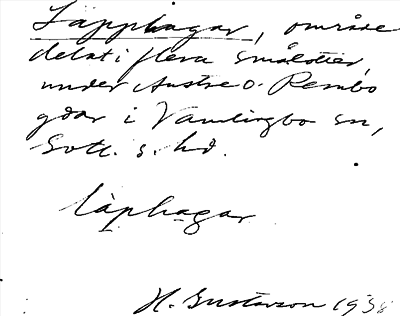 Läpphagar, område
delat i flera småloтter,
under Austre o. Rembo
gdar i Vamlingbo sn,
Gotl. s. hd.
làphagar
H. Gustavson 1938